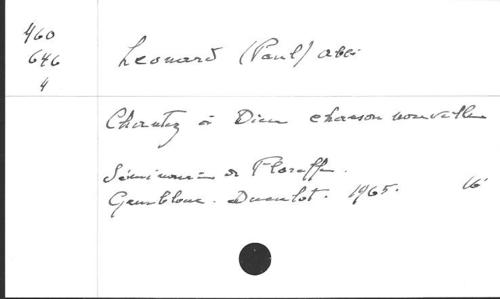 460
646
4
Leonard (Paul) abbé
Chantez à Dieu chanson nouvelle
Séminaire de Floreffe.
Gembloux. Duculot. 1965. 16°